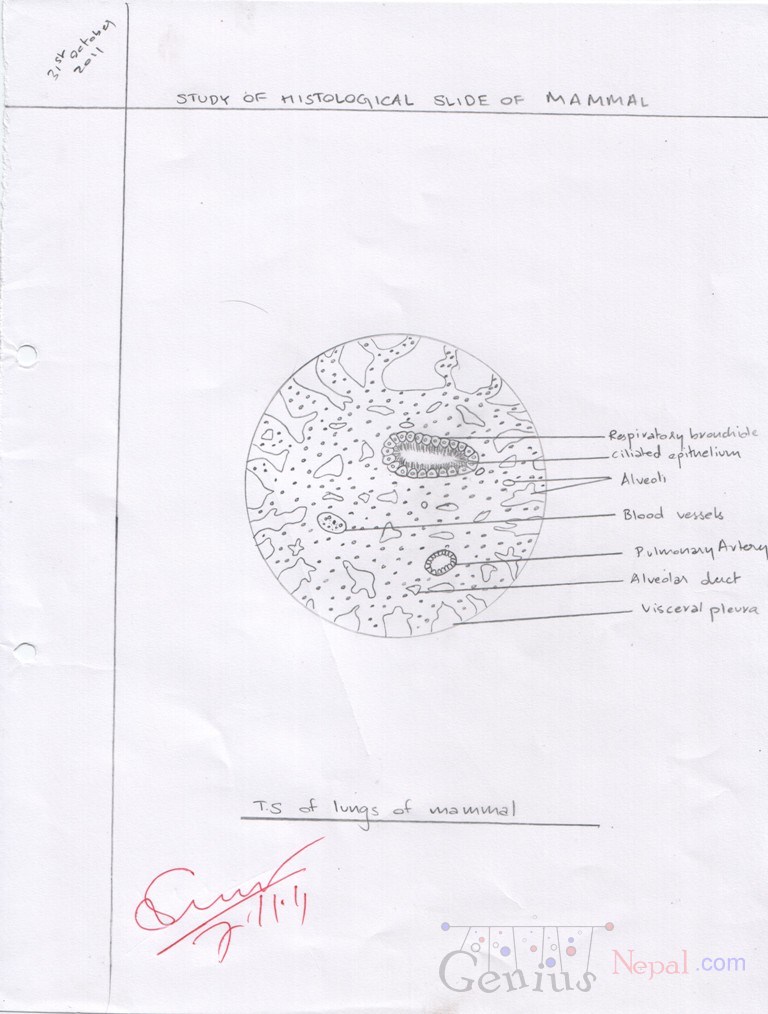 31st October
2011
STUDY OF HISTOLOGICAL SLIDE OF MAMMAL
Respiratory bronchiole
ciliated epithelium
Alveoli
Blood vessels
Pulmonary Artery
Alveolar duct
Visceral pleura
T.S of lungs of mammal
Genius Nepal.com